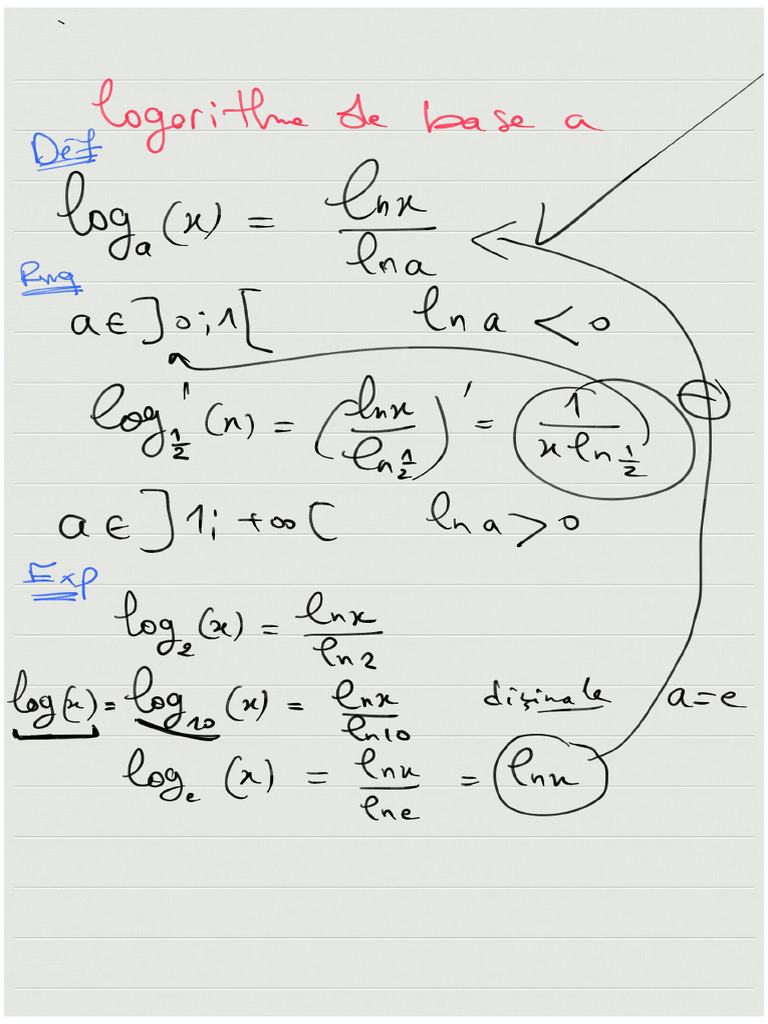 logorithme de base a
Déf
log_a (x) = lnx / lna
Rmq
a ∈ ]0;1[ ln a < 0
log'_{1/2} (x) = (lnx / ln 1/2)' = 1 / (x ln 1/2) −
a ∈ ]1; +∞[ ln a > 0
Exp
log_2 (x) = lnx / ln2
log(x) = log_10 (x) = lnx / ln10 a = e
log_e (x) = lnx / lne = lnx